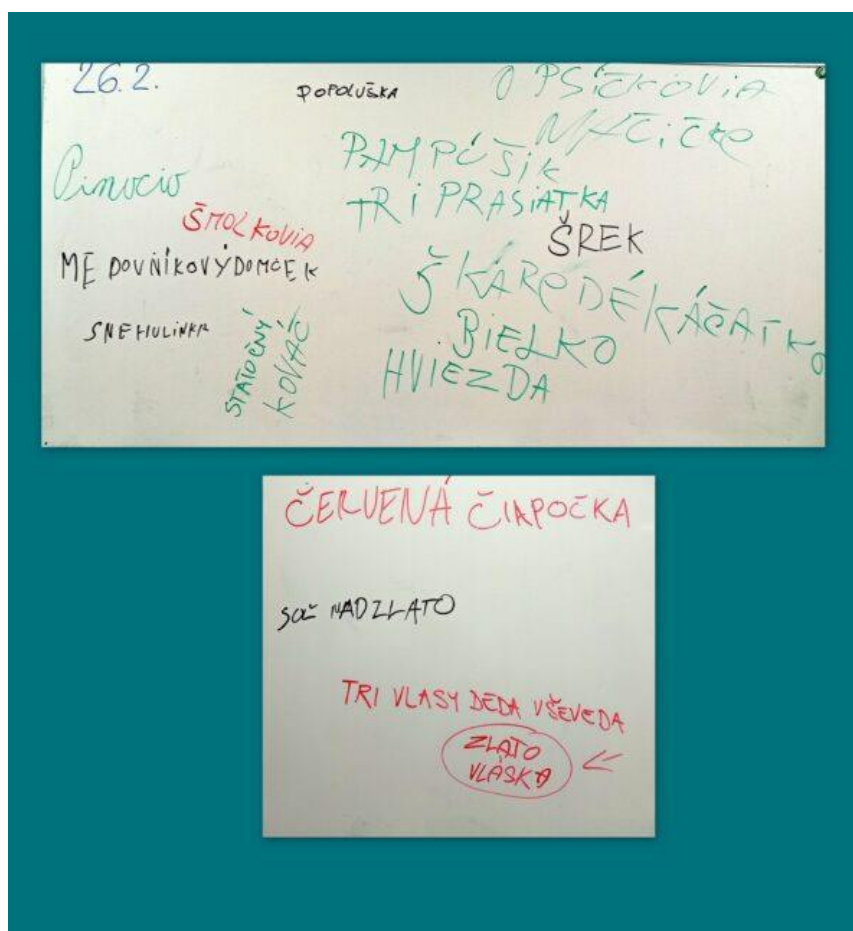 26.2.
POPOLUŠKA
O PSÍČKOVI A
MAČIČKE
Pinocio
PAMPÚŠIK
TRI PRASIATKA
ŠMOLKOVIA
ŠREK
MEDOVNÍKOVÝ DOMČEK
ŠKAREDÉ KÁČATKO
SNEHULINKA
STATOČNÝ
KOVÁČ
BIELKO
HVIEZDA
ČERVENÁ ČIAPOČKA
SOĽ NAD ZLATO
TRI VLASY DEDA VŠEVEDA
ZLATO
VLÁSKA